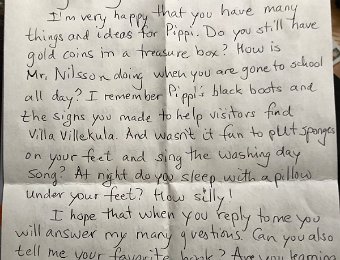 I'm very happy that you have many
things and ideas for Pippi. Do you still have
gold coins in a treasure box? How is
Mr. Nilsson doing when you are gone to school
all day? I remember Pippi's black boots and
the signs you made to help visitors find
Villa Villekula. And wasn't it fun to put sponges
on your feet and sing the washing day
song? At night do you sleep with a pillow
under your feet? How silly!
I hope that when you reply to me you
will answer my many questions. Can you also
tell me your favorite book? Are you learning